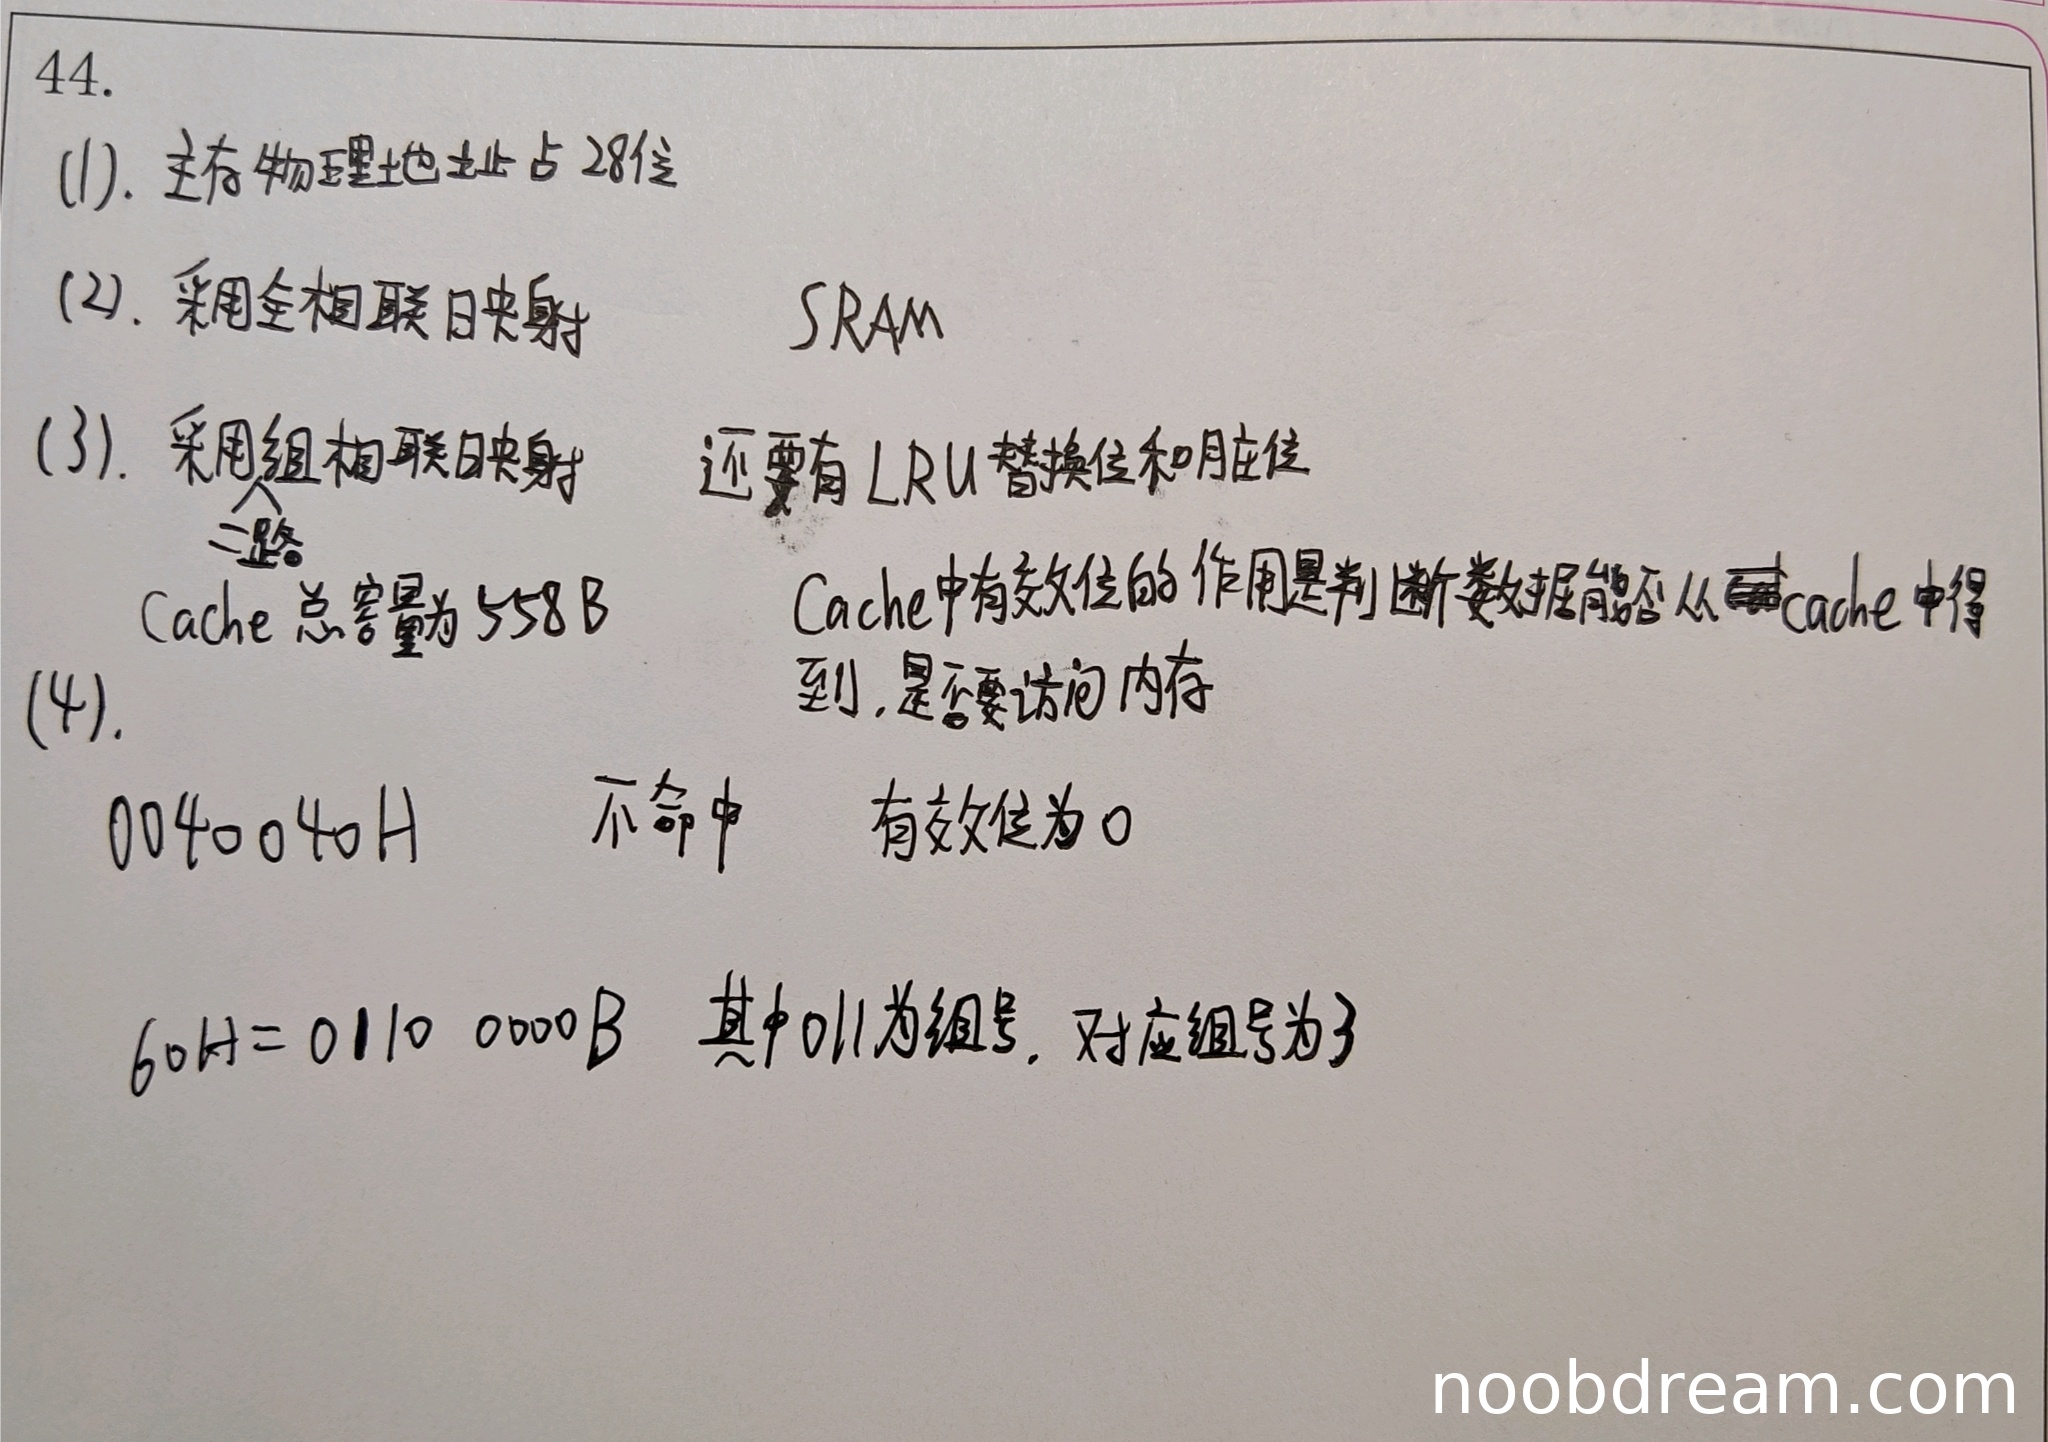 44.
(1). 主存物理地址占 28位
(2). 采用全相联映射 SRAM
(3). 采用二路组相联映射 还要有 LRU 替换位和脏位
Cache 总容量为 558 B Cache中有效位的作用是判断数据能否从cache中得
到, 是否要访问内存
(4).
0040040H 不命中 有效位为 0
60H = 0110 0000B 其中011为组号, 对应组号为3
noobdream.com